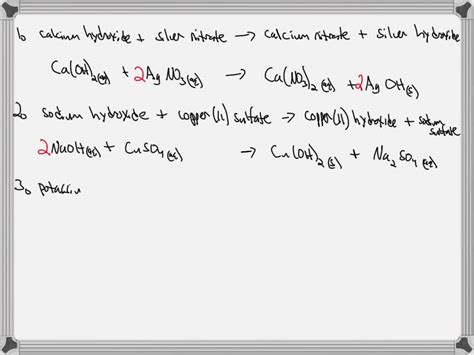 1. calcium hydroxide + silver nitrate → calcium nitrate + silver hydroxide
Ca(OH)₂(aq) + 2AgNO₃(aq) → Ca(NO₃)₂(aq) + 2AgOH(s)
2. sodium hydroxide + copper(II) sulfate → copper(II) hydroxide + sodium
sulfate
2NaOH(aq) + CuSO₄(aq) → Cu(OH)₂(s) + Na₂SO₄(aq)
3. potassiu